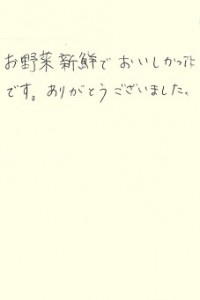 お野菜新鮮でおいしかった
です。ありがとうございました。